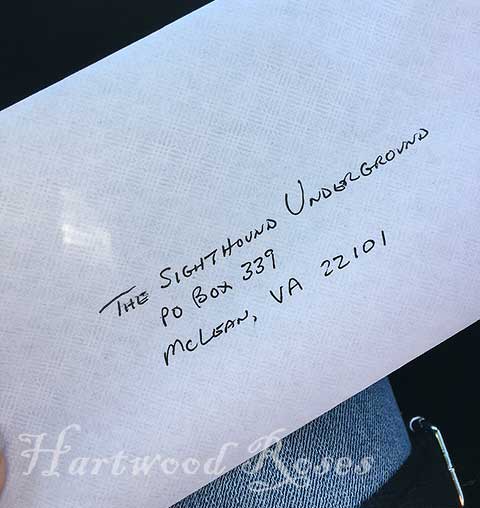 The SightHound Underground
PO Box 339
McLean, VA 22101
Hartwood Roses